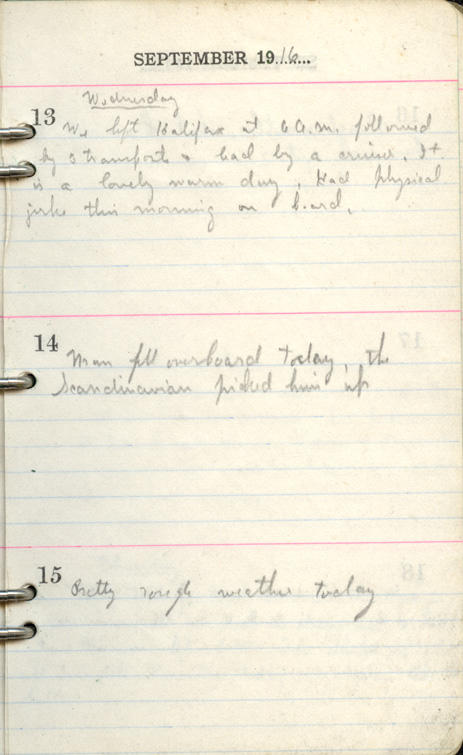 SEPTEMBER 1916
13 Wednesday
We left Halifax at 6 a.m. followed
by 3 transports & lead by a cruiser. It
is a lovely warm day. Had Physical
jerks this morning on board.
14 Man fell overboard today the
Scandinavian picked him up
15 Pretty rough weather today